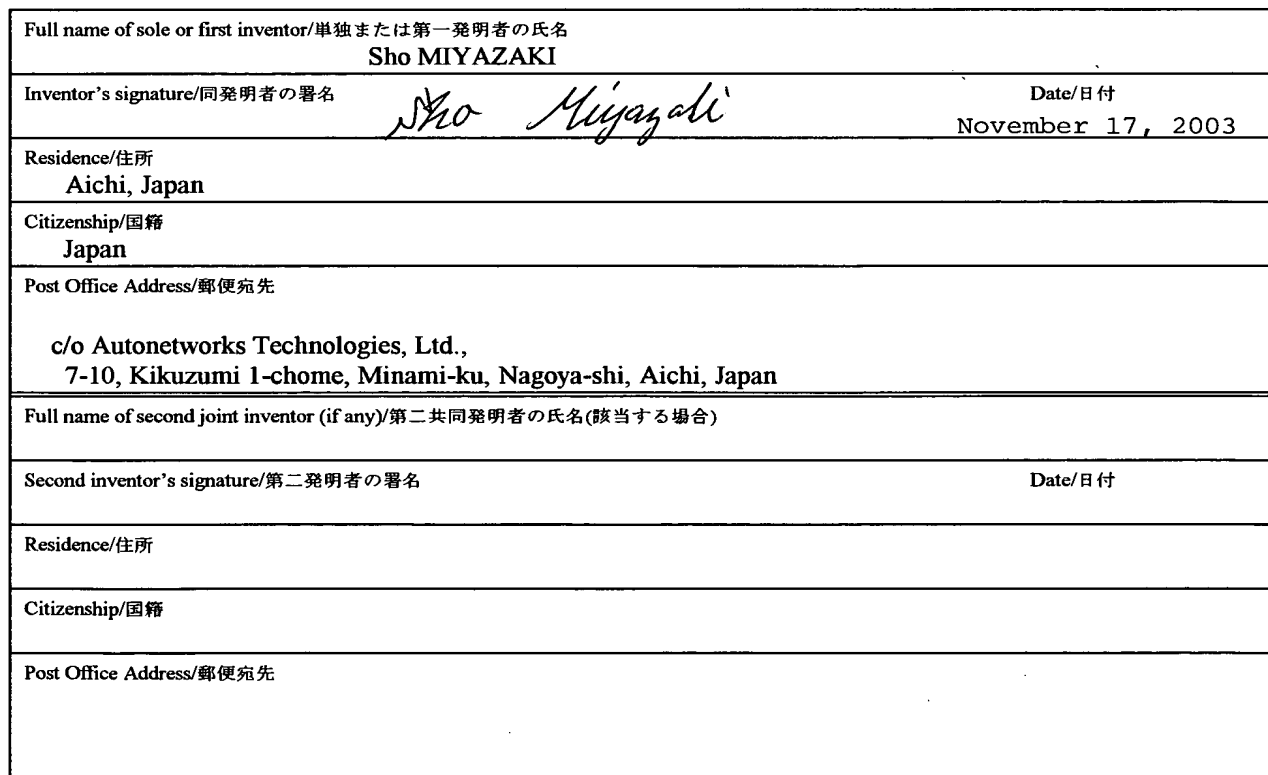 Full name of sole or first inventor/単独または第一発明者の氏名
Sho MIYAZAKI
Inventor's signature/同発明者の署名
Date/日付
Sho Miyazaki
November 17, 2003
Residence/住所
Aichi, Japan
Citizenship/国籍
Japan
Post Office Address/郵便宛先
c/o Autonetworks Technologies, Ltd.,
7-10, Kikuzumi 1-chome, Minami-ku, Nagoya-shi, Aichi, Japan
Full name of second joint inventor (if any)/第二共同発明者の氏名(該当する場合)
Second inventor's signature/第二発明者の署名
Date/日付
Residence/住所
Citizenship/国籍
Post Office Address/郵便宛先